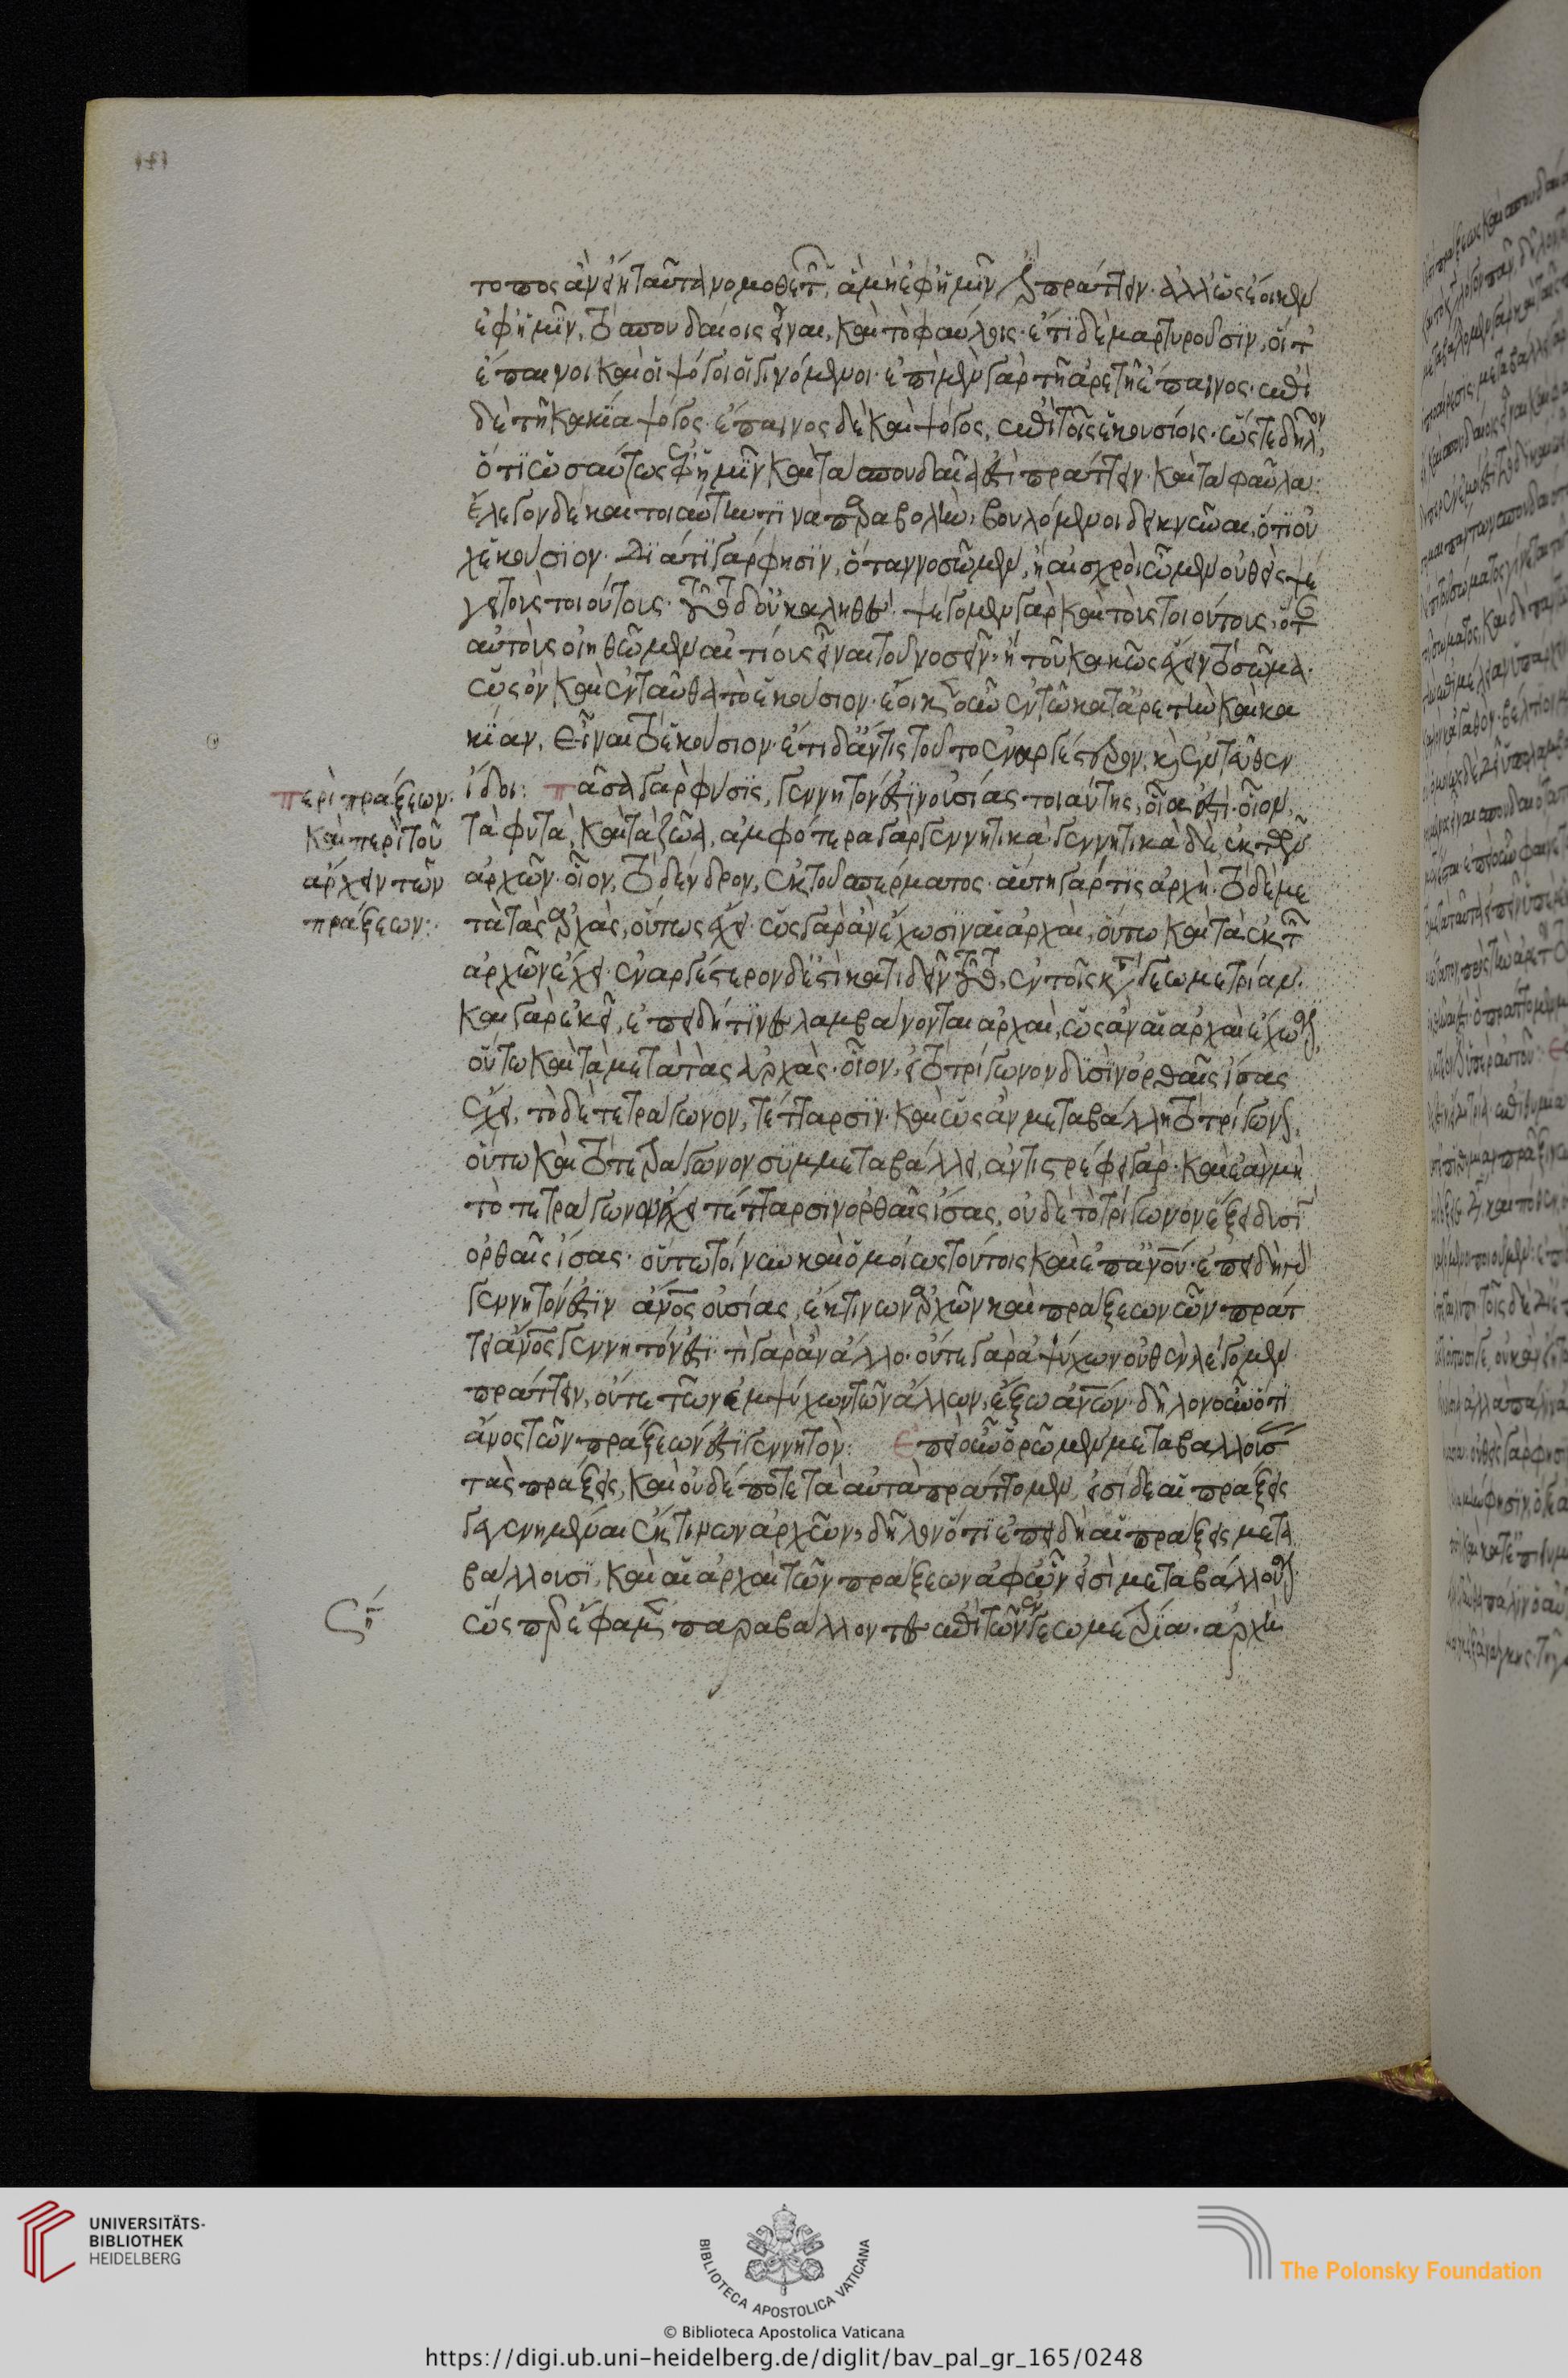 τοπος ἂν εἴη ταῦτα νομοθετῶν, ἃ μὴ ἐφ' ἡμῖν ἐστι πράττειν· ἀλλ' ὡς ἔοικεν
ἐφ' ἡμῖν, τὸ σπουδαίοις εἶναι, καὶ τὸ φαύλοις· ἔτι δὲ μαρτυροῦσιν, οἵ τε
ἔπαινοι καὶ οἱ ψόγοι οἱ γινόμενοι· ἐπὶ μὲν γὰρ τῇ ἀρετῇ ἔπαινος· ἐπὶ
δὲ τῇ κακίᾳ ψόγος· ἔπαινος δὲ καὶ ψόγος, ἐπὶ τοῖς ἑκουσίοις· ὥστε δῆλον,
ὅτι ὡσαύτως ἐφ' ἡμῖν καὶ τὰ σπουδαῖα ἐστὶ πράττειν· καὶ τὰ φαῦλα:
ἔλεγον δὲ καὶ τοιαύτην τινὰ παραβολὴν, βουλόμενοι δεικνύναι, ὅτι οὐ
χ ἑκούσιον· διατί γάρ φησιν, ὅταν νοσῶμεν, ἢ αἰσχροὶ ὦμεν οὐθεὶς ψέ
γει τοὺς τοιούτους· τοῦτο δ' οὐκ ἀληθές· ψέγομεν γὰρ καὶ τοὺς τοιούτους, ὅταν
αὐτοὺς οἰηθῶμεν αἰτίους εἶναι τοῦ νοσεῖν, ἢ τοῦ κακῶς ἔχειν τὸ σῶμα·
ὡς ὂν καὶ ἐνταῦθα τὸ ἑκούσιον· ἔοικεν οὖν ἐν τῷ κατ' ἀρετὴν καὶ κα
κίαν, εἶναι τὸ ἑκούσιον· ἔτι δ' ἄν τις τοῦτο ἐναργέστερον, καὶ ἐντεῦθεν
ἴδοι: πᾶσα γὰρ φύσις, γεννητόν ἐστιν οὐσίας τοιαύτης, οἵα ἐστί· οἷον,
τὰ φυτὰ, καὶ τὰ ζῶα, ἀμφότερα γὰρ γεννητικά· γεννητικὰ δὲ ἐκ τῶν
ἀρχῶν· οἷον, τὸ δένδρον, ἐκ τοῦ σπέρματος· αὕτη γάρ τις ἀρχή. τὸ δὲ με
τὰ τὰς ἀρχὰς, οὕτως ἔχει· ὡς γὰρ ἂν ἔχωσιν αἱ ἀρχαὶ, οὕτω καὶ τὰ ἐκ τῶν
ἀρχῶν ἔχει· ἐναργέστερον δ' ἔστι κατιδεῖν τοῦτο, ἐν τοῖς κατὰ γεωμετρίαν·
καὶ γὰρ ἐκεῖ, ἐπειδή τινες λαμβάνονται ἀρχαὶ, ὡς ἂν αἱ ἀρχαὶ ἔχωσιν,
οὕτω καὶ τὰ μετὰ τὰς ἀρχὰς· οἷον, εἰ τὸ τρίγωνον δυσὶν ὀρθαῖς ἴσας
ἔχει, τὸ δὲ τετράγωνον, τέτταρσιν· καὶ ὡς ἂν μεταβάλλῃ τὸ τρίγωνον,
οὕτω καὶ τὸ τετράγωνον συμμεταβάλλει, ἀντιστρέφει γάρ· καὶ ἐὰν μὴ
τὸ τετράγωνον ἔχει τέτταρσιν ὀρθαῖς ἴσας, οὐδὲ τὸ τρίγωνον ἕξει δυσὶν
ὀρθαῖς ἴσας· οὕτω τοίνυν καὶ ὁμοίως τούτοις καὶ ἐπ' ἀνου· ἐπειδὴ γάρ
γεννητόν ἐστιν ἀνος οὐσίας, ἔκ τινων ἀρχῶν καὶ πράξεων ὧν πράτ
τει ἀνος γεννητόν ἐστι· τί γὰρ ἂν ἄλλο· οὔτε γὰρ ἀψύχων οὐθὲν λέγομεν
πράττειν, οὔτε τῶν ἐμψύχων τῶν ἄλλων, ἔξω ἀνων· δῆλον οὖν ὅτι
ἀνος τῶν πράξεών ἐστι γεννητόν: Ἐπεὶ οὖν ὁρῶμεν μεταβάλλούσας
τὰς πράξεις, καὶ οὐδέποτε τὰ αὐτὰ πράττομεν, εἰσὶ δὲ αἱ πράξεις
γεγενημέναι ἔκ τινων ἀρχῶν, δῆλον ὅτι ἐπειδὴ αἱ πράξεις μετα
βάλλουσι, καὶ αἱ ἀρχαὶ τῶν πράξεων ἀφ' ὧν εἰσὶ μεταβάλλουσιν·
ὥσπερ ἔφαμεν παραβάλλοντες ἐπὶ τῶν ἐν γεωμετρίᾳ. ἀρχὴ
περὶ πράξεων·
καὶ περὶ τοῦ
ἄρχειν τῶν
πράξεων: